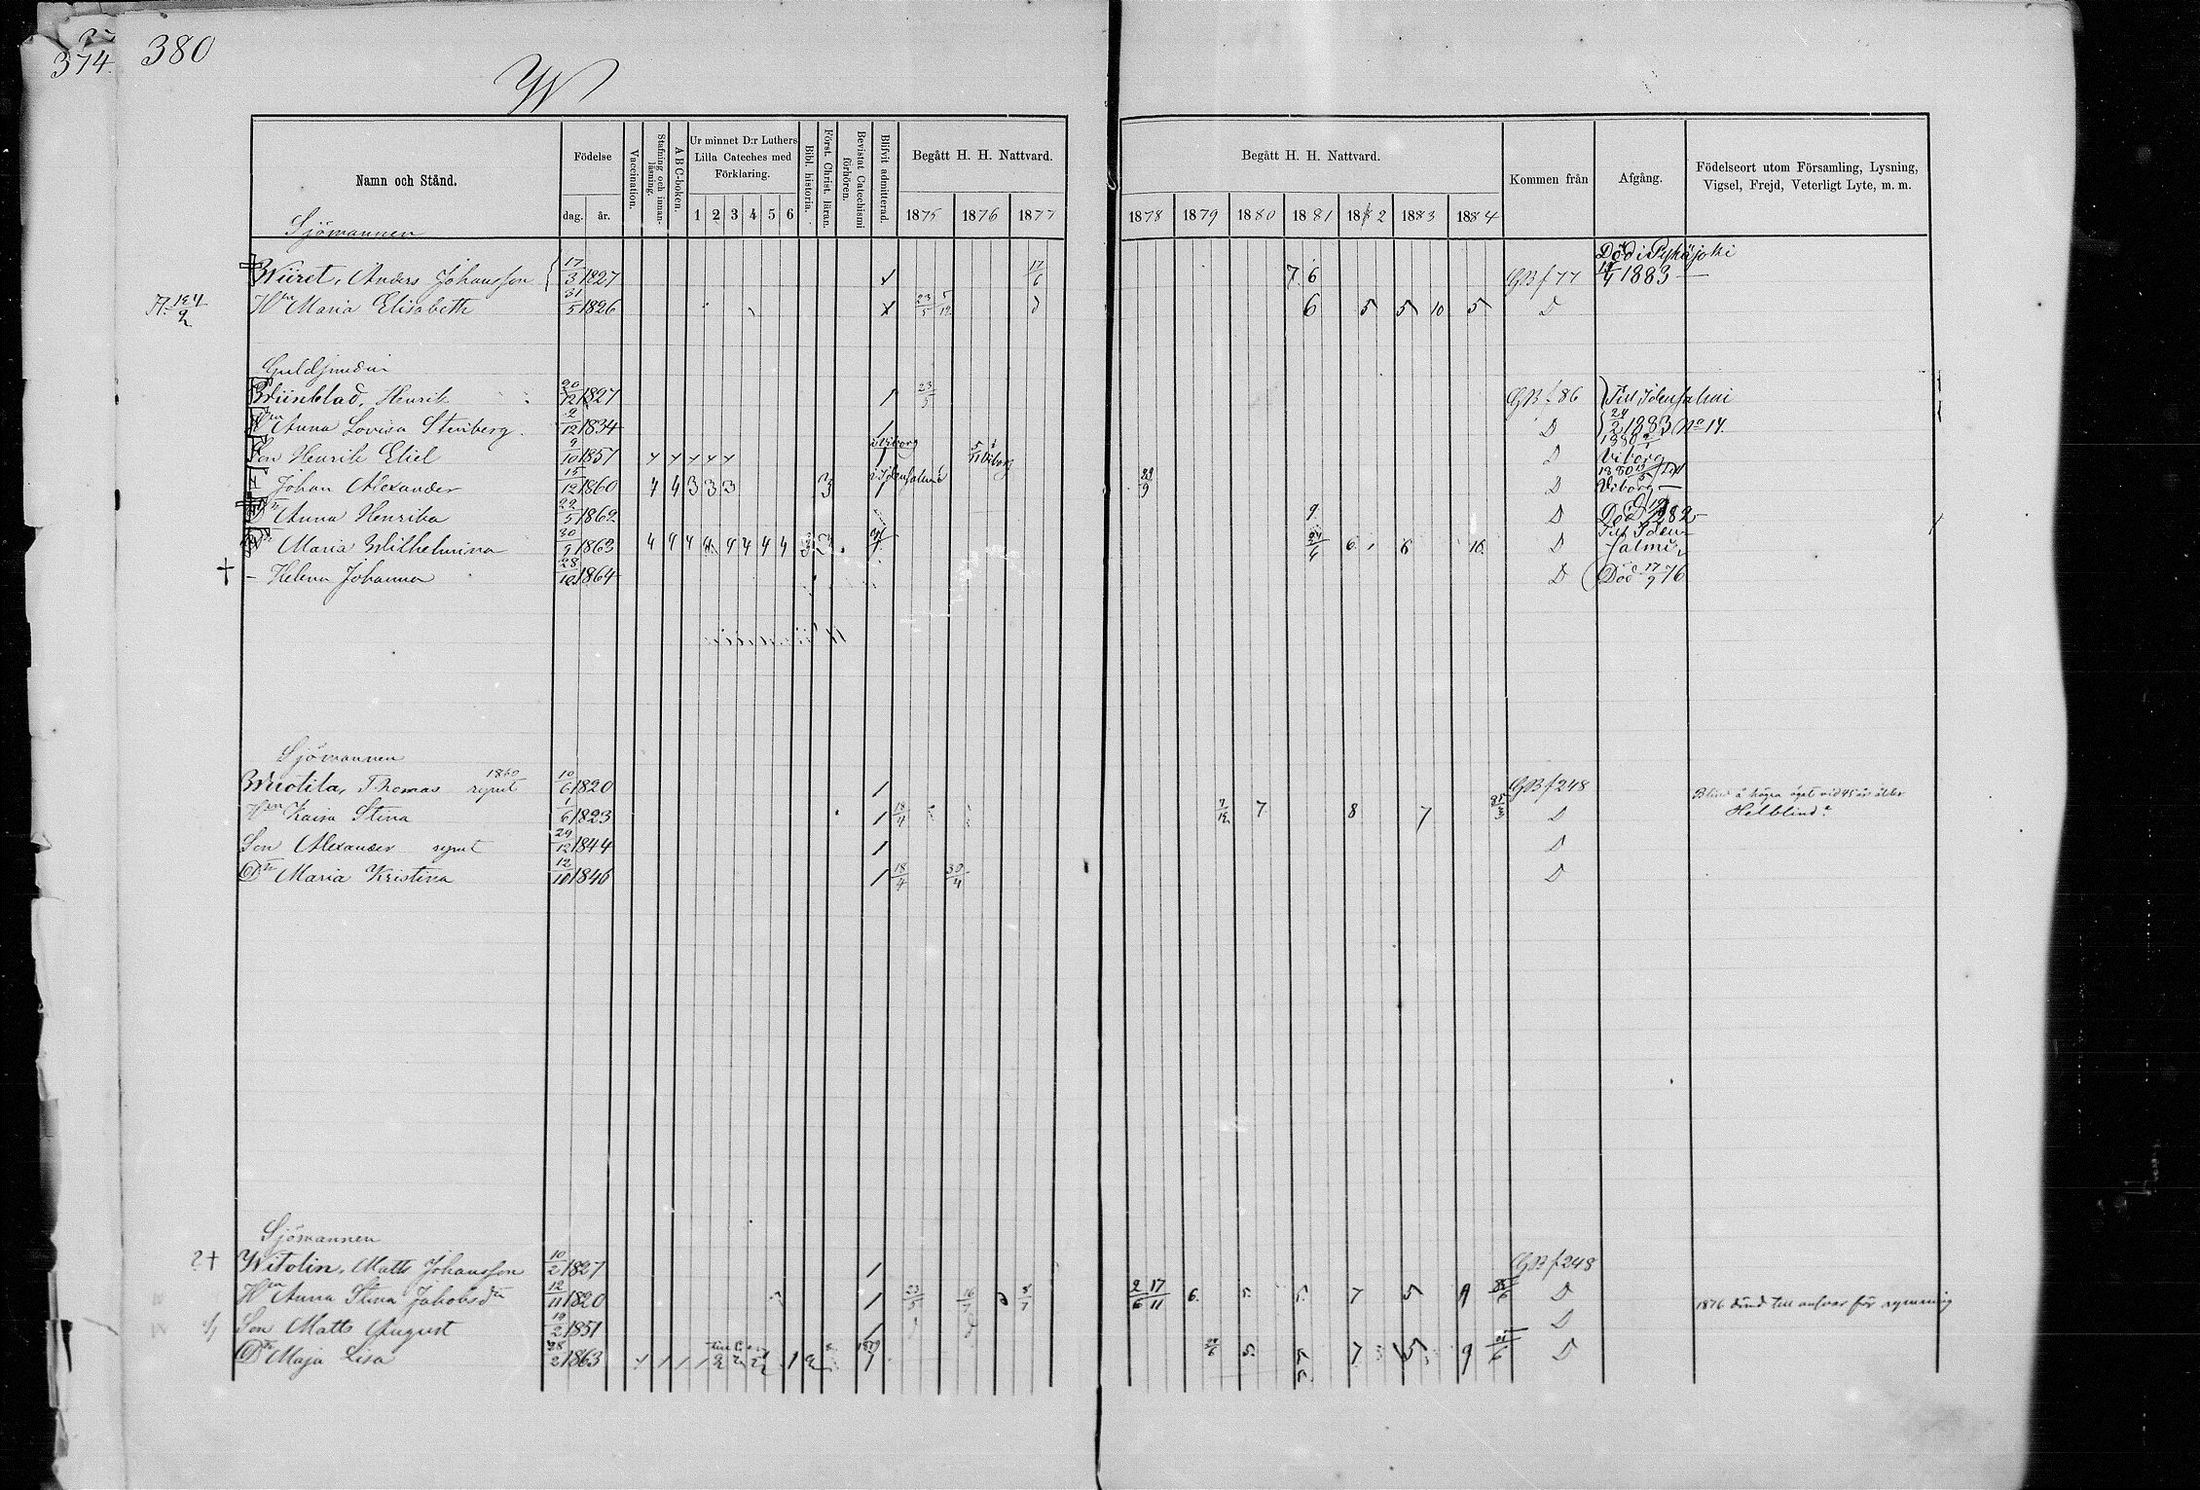 374.
380
W
Namn och Stånd.
Födelse
dag. år.
Vaccination.
Stafning och innanläsning.
A B C-boken.
Ur minnet D:r Luthers Lilla Cateches med Förklaring.
1 2 3 4 5 6
Bibl. historia.
Först. Christ. läran.
Bevistat Catechismi förhören.
Blifvit admitterad
Begått H. H. Nattvard.
1875 1876 1877
Begått H. H. Nattvard.
1878 1879 1880 1881 1882 1883 1884
Kommen från
Afgång.
Födelseort utom Församling, Lysning, Vigsel, Frejd, Veterligt Lyte, m. m.
Sjömannen
Wiiret, Anders Johansson 17/3 1827 17/6 7 6 GB f 77 Död i Pyhäjoki 1883
Hn Maria Elisabeth 31/5 1826 23/5 5/12 6 5 5 10 5 D
Guldsmeden
Wiinblad, Henrik 20/12 1827 1 23/5 GB f 86 Till Idensalmi
Hn Anna Lovisa Stenberg 2/12 1834 1 D 24/2 1883 No 14.
Son Henrik Eliel 9/10 1857 i Viborg 5/11 Viborg D 1880 Viborg
Johan Alexander 15/12 1860 4 4 3 3 3 3 i Idensalmi 29/9 D 1880 Viborg
Dr Anna Henrika 22/5 1862 9 D Död 1882
Dr Maria Wilhelmina 30/9 1863 4 4 4 4 4 4 4 4 3 3 6 6 10 D Till Idensalmi
- Helena Johanna 28/10 1864 D Död 17/9 76
Sjömannen
Wuotila, Thomas rymt 1860 10/6 1820 1 GB f 248 Blind å högra ögat vid 45 års ålder
Hn Kaisa Stina 1/6 1823 1 18/4 7/12 7 8 7 D Helblind?
Son Alexander rymt 29/12 1844 1 D
Dr Maria Kristina 12/10 1846 1 18/4 30/4 D
Sjömannen
?† Witolin, Matts Johansson 10/2 1827 1 GB f 248
Hn Anna Stina Jakobsdr 12/11 1820 1 23/5 16/7 8/7 2/6 17/11 6. 5. 5. 7 5 9 D
Son Matts August 19/2 1851 1 D 1876 dömd till ansvar för rymning
Dr Maja Lisa 28/2 1863 1 1 1 1 2 2 2 1 2 1879 1 5. 5 7 5 9 D
5.